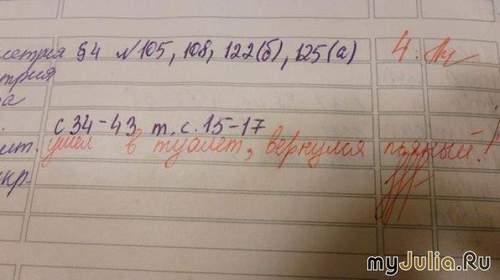 метрия §4 №105, 108, 122(б), 125(а) 4.
трия
а
с 34-43 т. с. 15-17
ит. ушел в туалет, вернулся пьяный!
кр.
myJulia.Ru